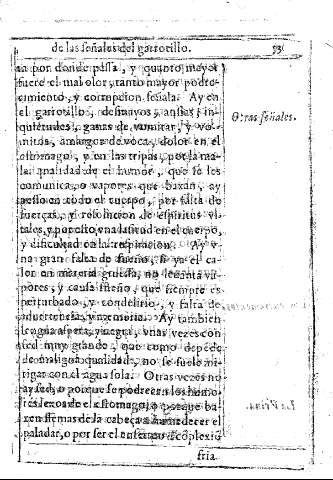 de las señales del garrotillo. 53
na por donde passa, y quanto mayor
fuere el mal olor, tanto mayor podre-
cimiento, y corrupcion señala. Ay en
el garrotillo, desmayos, ansias, in-
Otras señales.
quietudes, ganas de vomitar, y vo-
mitos, amargos de voca, dolor en el
estomago, y en las tripas, por la ma-
la qualidad de el humor, que se les
comunica, o vapores que baxan, ay
en todo el cuerpo, por falta de
fuerças, y resolucion de espiritus vi-
tales, y por esto vna latitud en el cuerpo,
y dificultad en la respiracion. Ay v-
na gran falta de sueño, si ya el ca-
lor en materia gruessa, no leuanta va-
pores, y causa sueño, que siempre es
perturbado, y con delirio, y falta de
aduertencia, y memoria. Ay tambien
lengua aspera, y negra, vnas vezes con
sed muy grande, que como depende
de maligna qualidad, no se suele mi-
tigar con el agua sola. Otras vezes no
ay sed, o porque se podrecen los humo-
res lexos de el estomago, o porque ba-
xen flemas de la cabeça a humedecer el
paladar, o por ser el enfermo de complexiõ
fria.